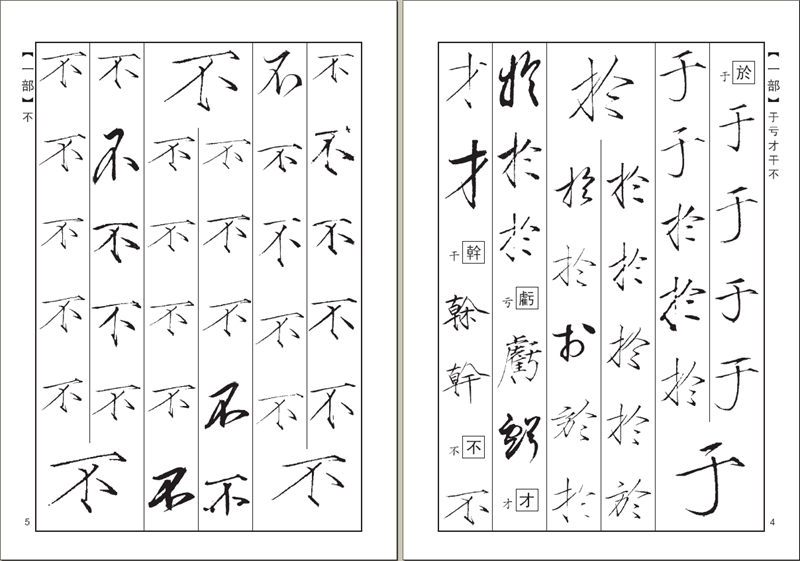 【一部】于亏才干不
於于
于于于于
于于於於於
于
於
於於於於於
於於於於於
於於於
虧亏
虧虧
才才
才才
幹干
幹幹
不不
不
4
【一部】不
不不不不不
不不不不不
不
不
不不不不不
不不不不不
不不不不不
不不不不不
不
5